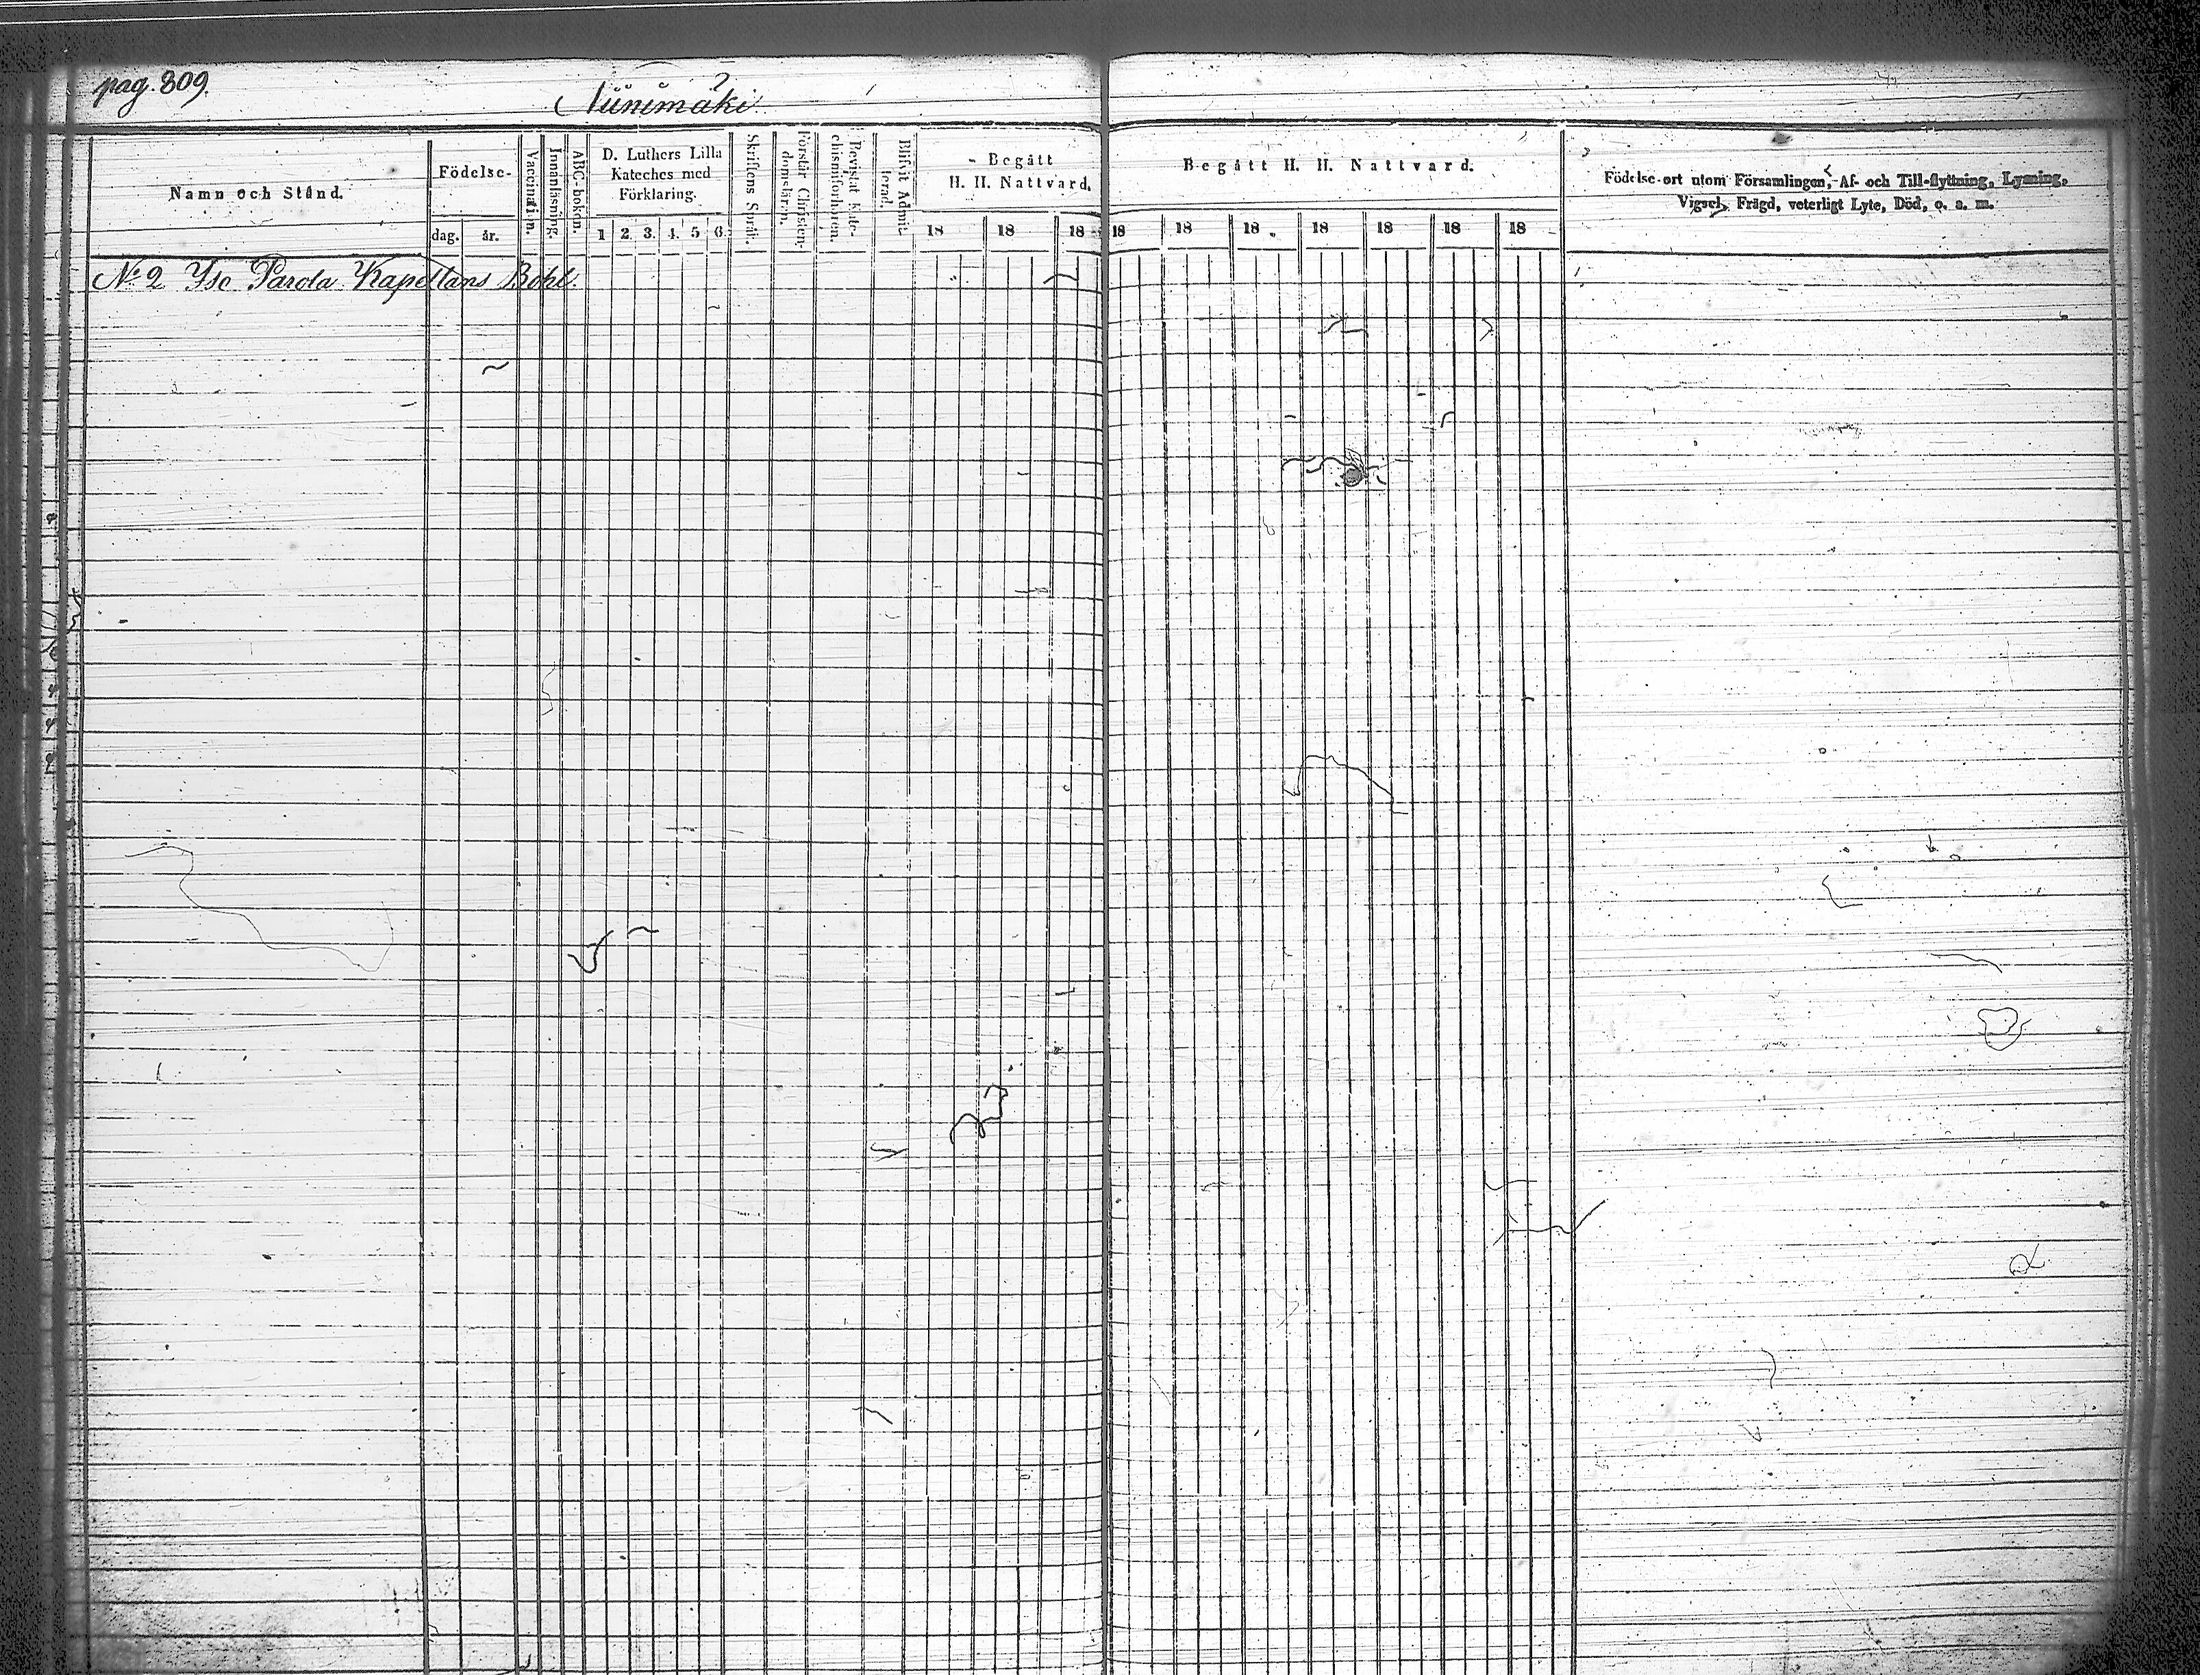 pag. 809.
Niinimäki
Namn och Stånd.
Födelse-
dag. år.
Vaccination.
Innanläsning.
ABC-boken.
D. Luthers Lilla
Kateches med
Förklaring.
1 2. 3. 4. 5 6.
Skriftens Språk.
Förstår Christen-
domsläran.
Bevistat Kate-
chismiförhören.
Blifvit Admit-
terad.
Begått
H. H. Nattvard.
18 18 18
Begått H. H. Nattvard.
18 18 18 18 18 18 18
Födelse-ort utom Församlingen, Af- och Till-flyttning, Lysning,
Vigsel, Frägd, veterligt Lyte, Död, o. s. m.
No 2 Iso Parola Kapellans Bohl.